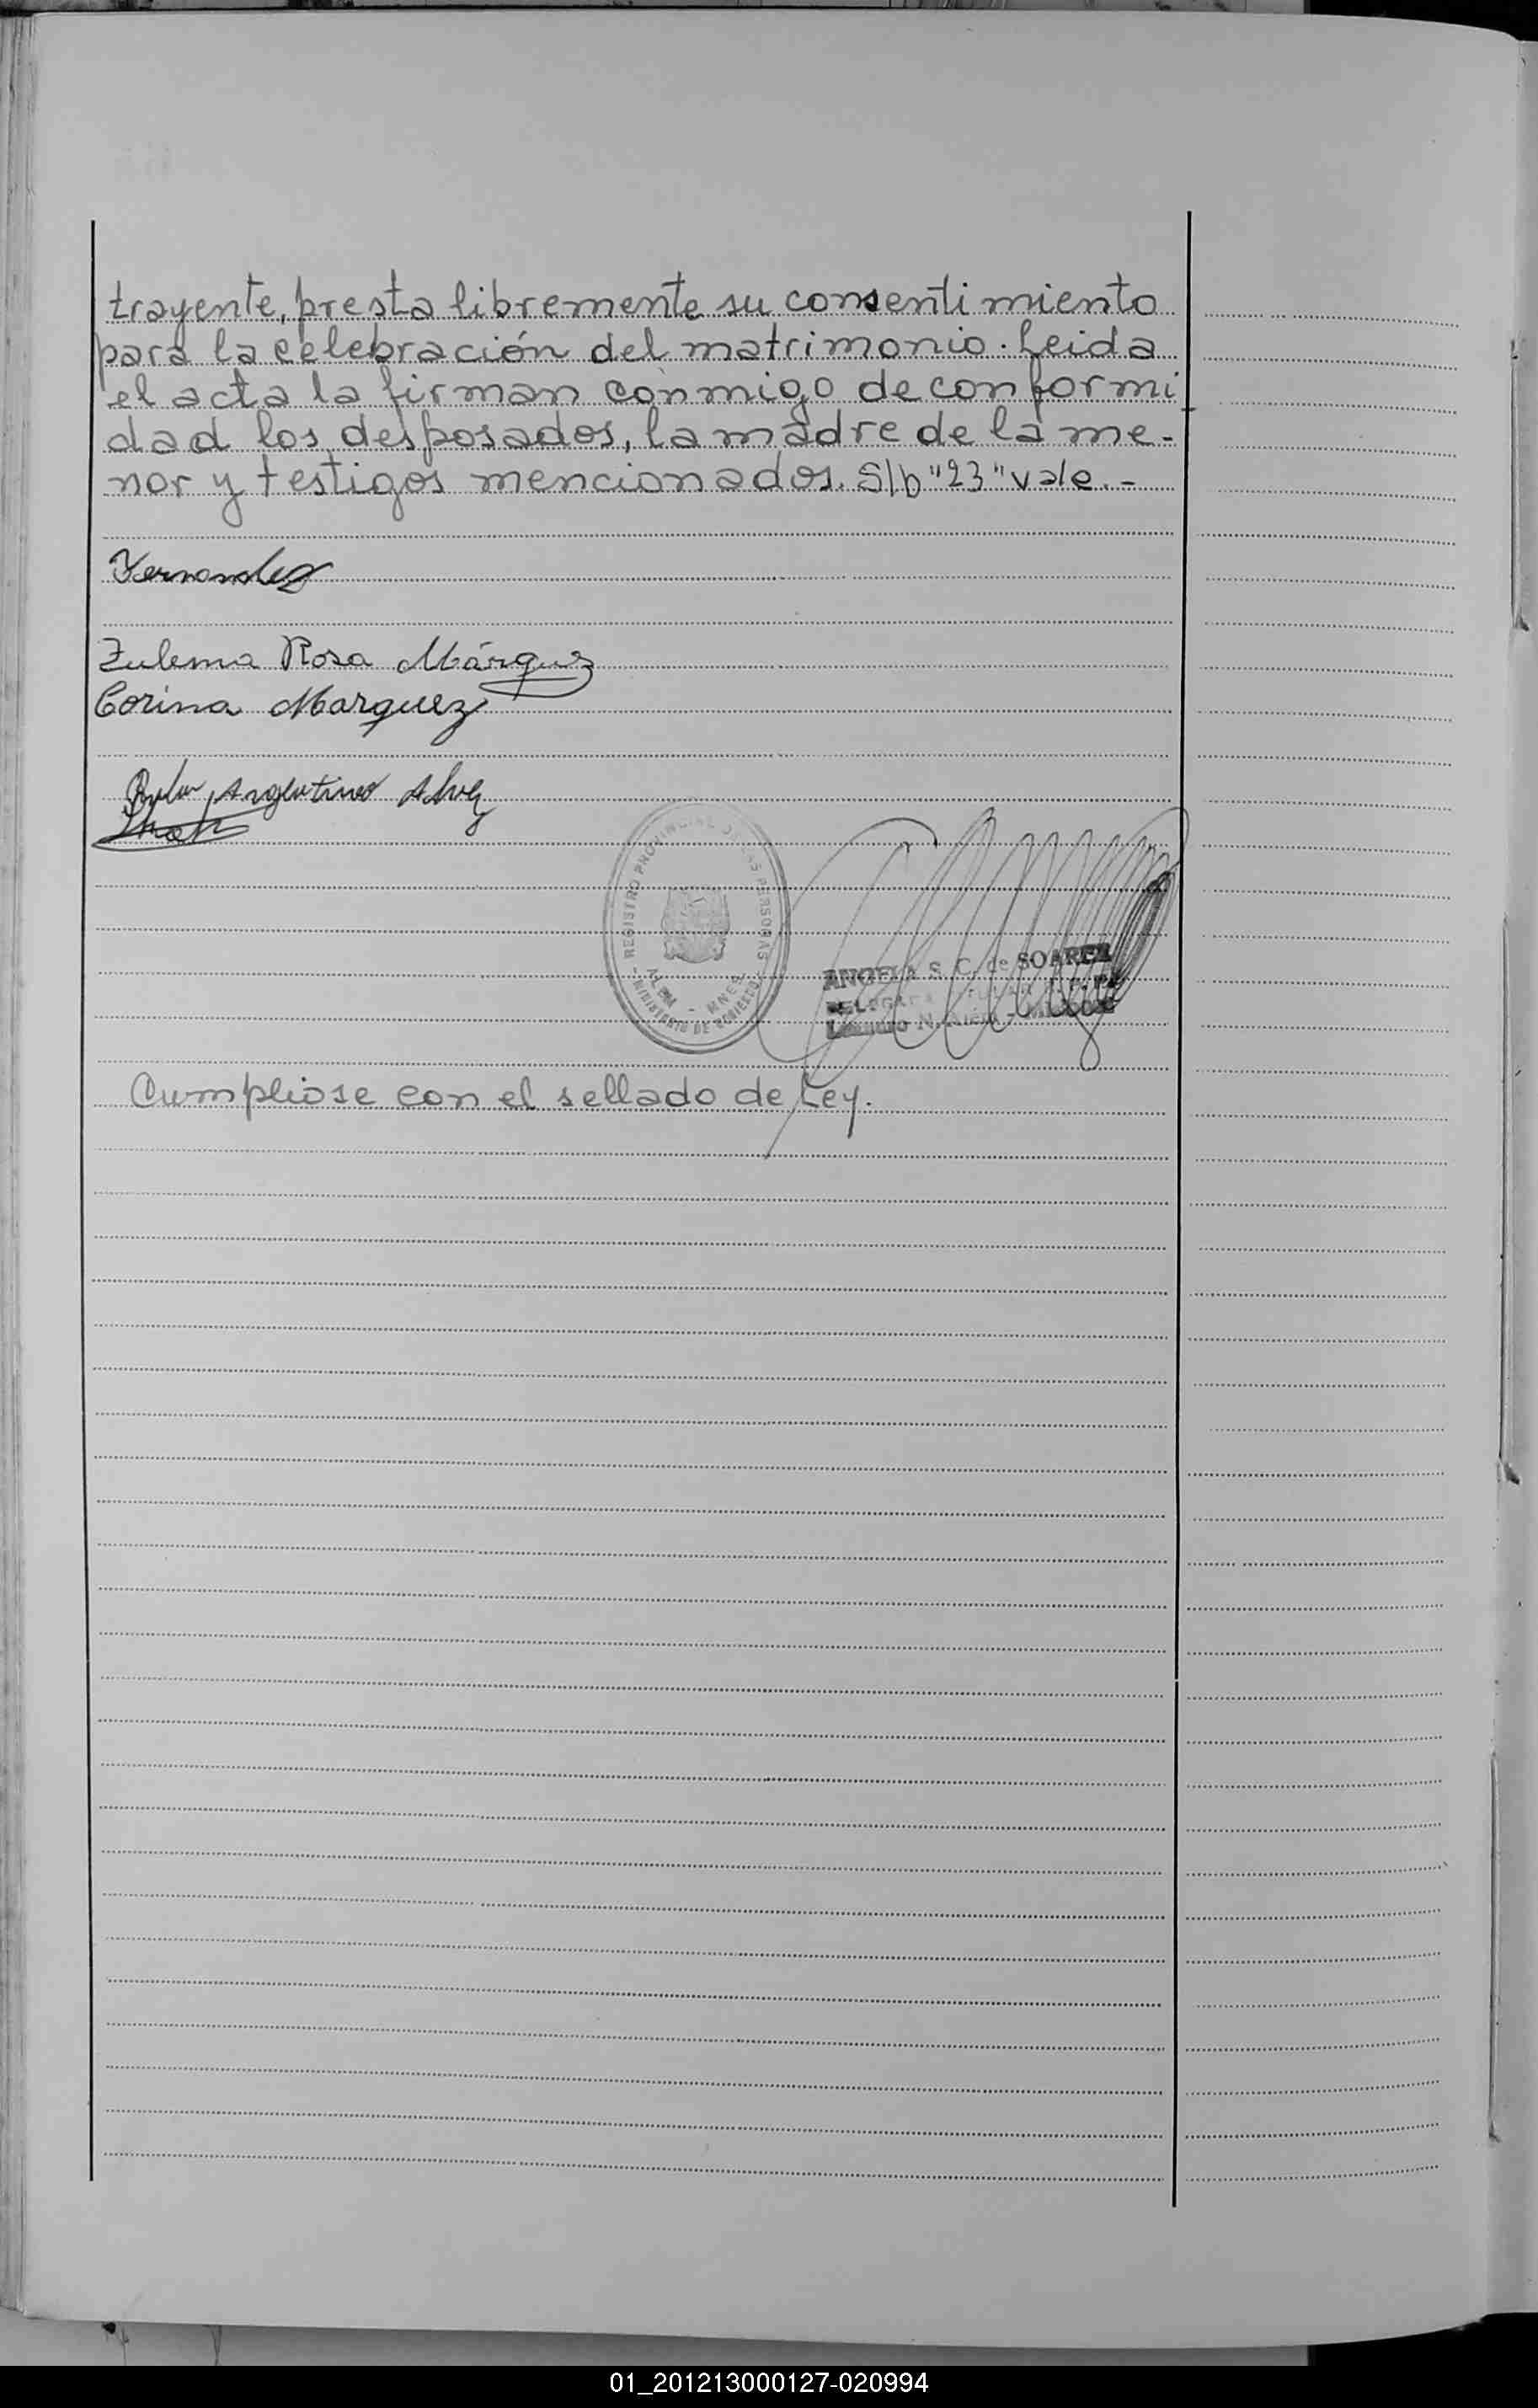 trayente, presta libremente su consentimiento
para la celebración del matrimonio. Leida
el acta la firman conmigo de conformi
dad los desposados, la madre de la me-
nor y testigos mencionados. S/b "23" vale.-
Fernandez
Zulema Rosa Márquez
Corina Marquez
Argentino Alvez
REGISTRO PROVINCIAL DE LAS PERSONAS
ALEM - MNES
MINISTERIO DE GOBIERNO
ANGELA S. C. de SOAREZ
DELEGADA TITULAR R. P. P.
Leandro N. Alem - Misiones
Cumpliose con el sellado de Ley.
01_201213000127-020994